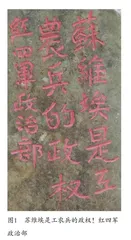 蘇維埃是工
農兵的政权
紅四軍政治部
图1　苏维埃是工农兵的政权！红四军
政治部